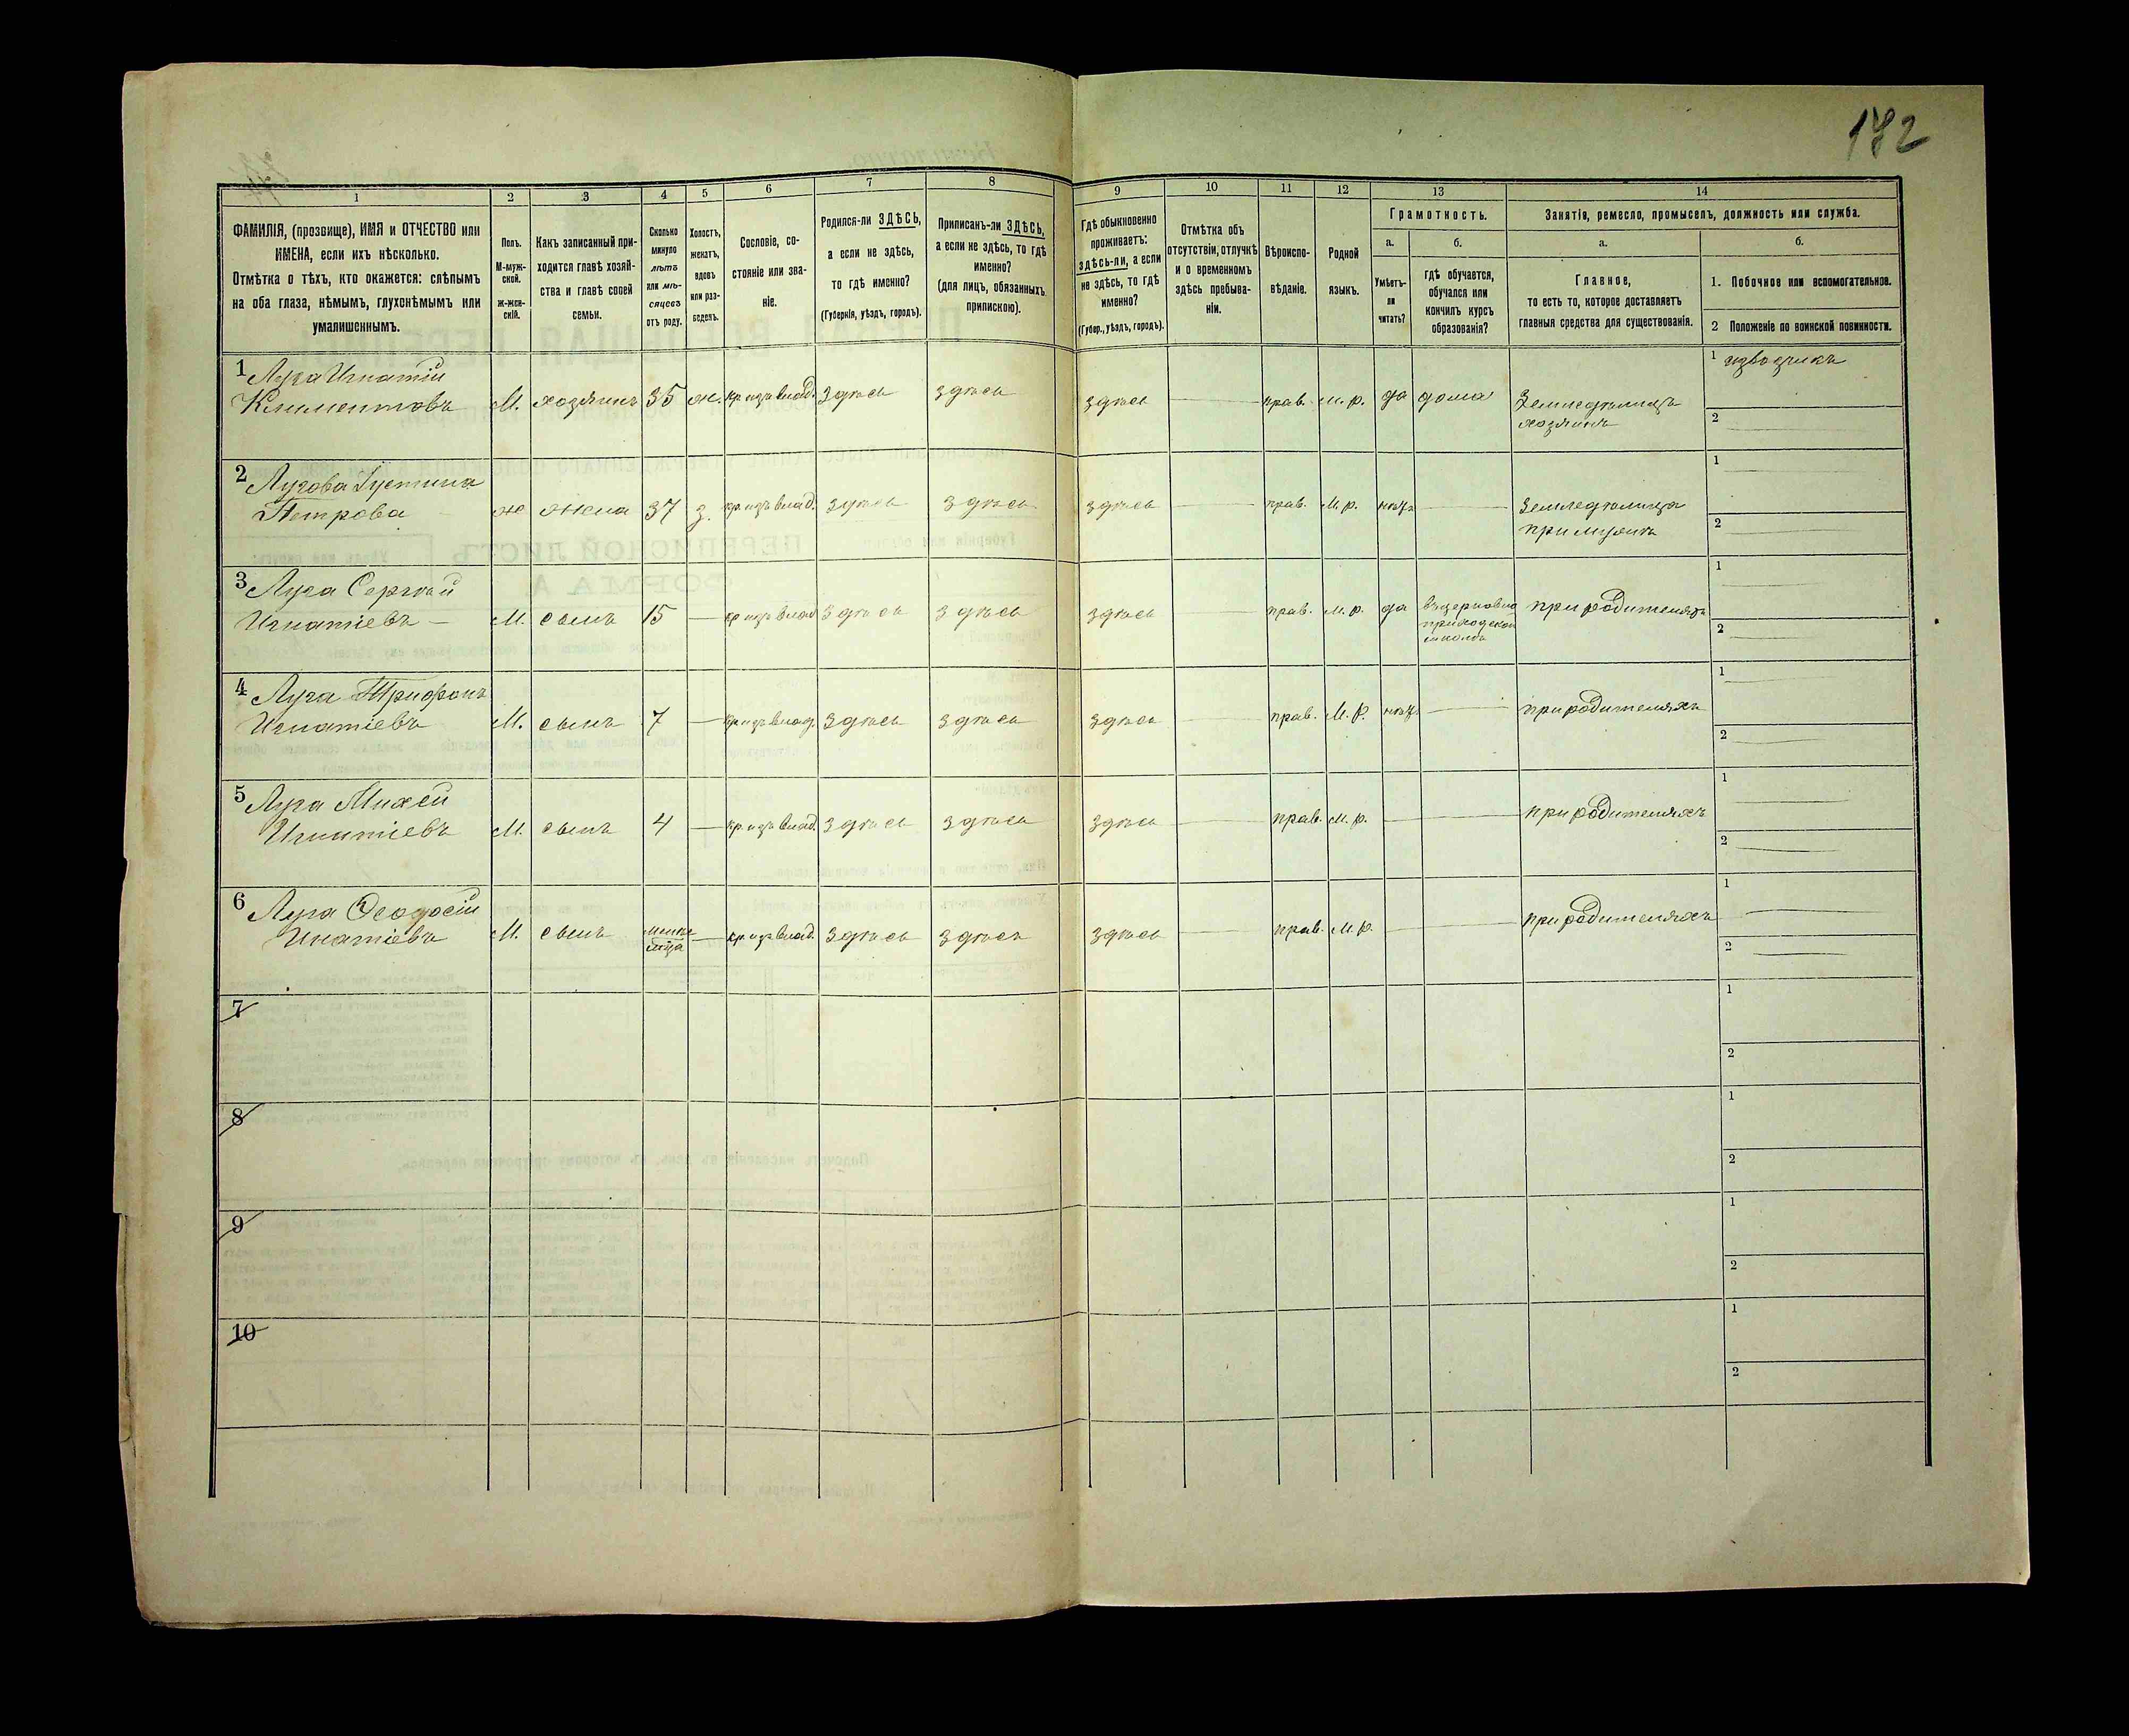 172
1 2 3 4 5 6 7 8 9 10 11 12 13 14
ФАМИЛІЯ, (прозвище), ИМЯ и ОТЧЕСТВО или
ИМЕНА, если ихъ нѣсколько.
Отмѣтка о тѣхъ, кто окажется: слѣпымъ
на оба глаза, нѣмымъ, глухонѣмымъ или
умалишеннымъ.
Полъ.
М-муж-
ской.
ж-жен-
скій.
Какъ записанный при-
ходится главѣ хозяй-
ства и главѣ своей
семьи.
Сколько
минуло
лѣтъ
или мѣ-
сяцевъ
отъ роду.
Холостъ,
женатъ,
вдовъ
или раз-
веденъ.
Сословіе, со-
стояніе или зва-
ніе.
Родился-ли ЗДѢСЬ,
а если не здѣсь,
то гдѣ именно?
(Губернія, уѣздъ, городъ).
Приписанъ-ли ЗДѢСЬ,
а если не здѣсь, то гдѣ
именно?
(для лицъ, обязанныхъ
припискою).
Гдѣ обыкновенно
проживаетъ:
здѣсь-ли, а если
не здѣсь, то гдѣ
именно?
(Губер., уѣздъ, городъ).
Отмѣтка объ
отсутствіи, отлучкѣ
и о временномъ
здѣсь пребыва-
ніи.
Вѣроиспо-
вѣданіе.
Родной
языкъ.
Грамотность.
а.
Умѣетъ-
ли
читать?
б.
гдѣ обучается,
обучался или
кончилъ курсъ
образованія?
Занятія, ремесло, промыселъ, должность или служба.
а.
Главное,
то есть то, которое доставляетъ
главныя средства для существованія.
б.
1. Побочное или вспомогательное.
2 Положеніе по воинской повинности.
1 Луга Игнатій
Климентовъ М. хозяинъ 35 ж. кр. изъ влад. здѣсь здѣсь здѣсь прав. м. р. да дома Земледѣлецъ
хозяинъ
1 извозчикъ
2
2 Лугова Іустина
Петрова ж жена 37 з. кр. изъ влад. здѣсь здѣсь здѣсь прав. М. р. нѣтъ Земледѣлица
при мужѣ
1
2
3 Луга Сергѣй
Игнатіевъ М. сынъ 15 кр изъ влад здѣсь здѣсь здѣсь прав. М. р. да въ церковно
приходской
школѣ
при родителяхъ
1
2
4 Луга Трифонъ
Игнатіевъ М. сынъ 7 кр изъ влад. здѣсь здѣсь здѣсь прав. М. р. нѣтъ при родителяхъ
1
2
5 Луга Михей
Игнатіевъ М. сынъ 4 кр изъ влад. здѣсь здѣсь здѣсь прав. м. р. при родителяхъ
1
2
6 Луга Ѳеодосій
Игнатіевъ М. сынъ кр изъ влад. здѣсь здѣсь здѣсь прав. М. р. при родителяхъ
1
2
7
1
2
8
1
2
9
1
2
10
1
2